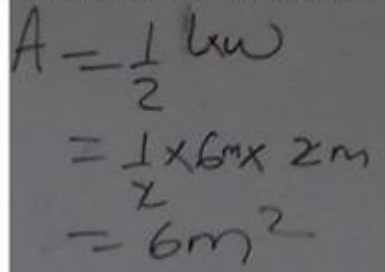 A = 1/2 lxw
= 1/2 x 6m x 2m
= 6m²